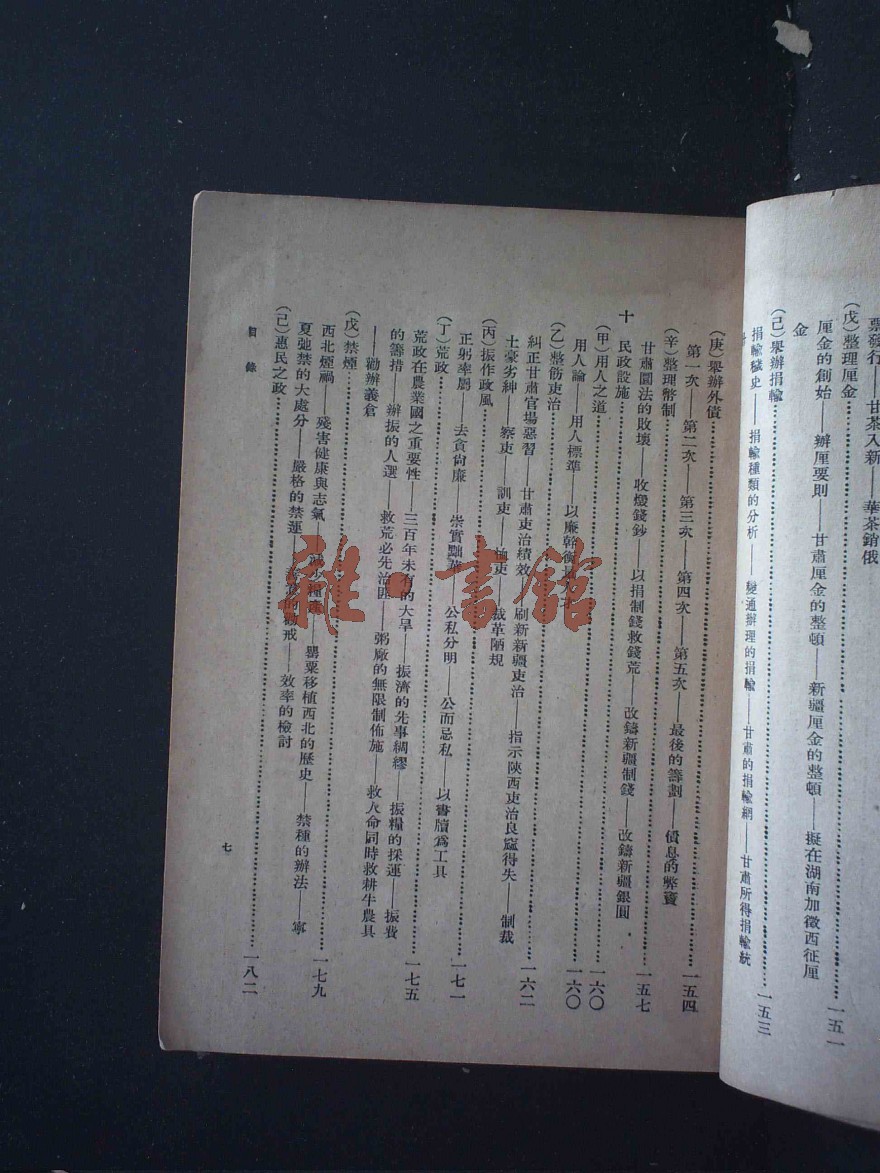 票發行——甘茶入新——華茶銷俄
(戊)整理厘金……一五一
厘金的創始——辦厘要則——甘肅厘金的整頓——新疆厘金的整頓——擬在湖南加徵西征厘
金
(己)舉辦捐輸……一五三
捐輸穢史——捐輸種類的分析——變通辦理的捐輸——甘肅的捐輸網——甘肅所得捐輸統
(庚)舉辦外債……一五四
第一次——第二次——第三次——第四次——第五次——最後的籌劃——債息的弊竇
(辛)整理幣制……一五七
甘肅圜法的敗壞——收燬錢鈔——以捐制錢救錢荒——改鑄新疆制錢——改鑄新疆銀圓
十 民政設施……一六〇
(甲)用人之道……一六〇
用人論——用人標準——以廉幹
(乙)整飭吏治……一六二
糾正甘肅官場惡習——甘肅吏治績效——刷新新疆吏治——指示陝西吏治良窳得失——制裁
土豪劣紳——察吏——訓吏——恤吏——裁革陋規
(丙)振作政風……一七一
正躬率屬——去貪尙廉——崇實黜華——公私分明——公而忌私——以書牘爲工具
(丁)荒政……一七五
荒政在農業國之重要性——三百年未有的大旱——振濟的先事綢繆——振糧的採運——振費
的籌措——辦振的人選——救荒必先治匪——粥廠的無限制佈施——救人命同時救耕牛農具
——勸辦義倉
(戊)禁煙……一七九
西北煙禍——殘害健康與志氣——減少種產——罌粟移植西北的歷史——禁種的辦法——寧
夏弛禁的大處分——嚴格的禁運——戒——效率的檢討
(己)惠民之政……一八二
目錄
七
雜·書館